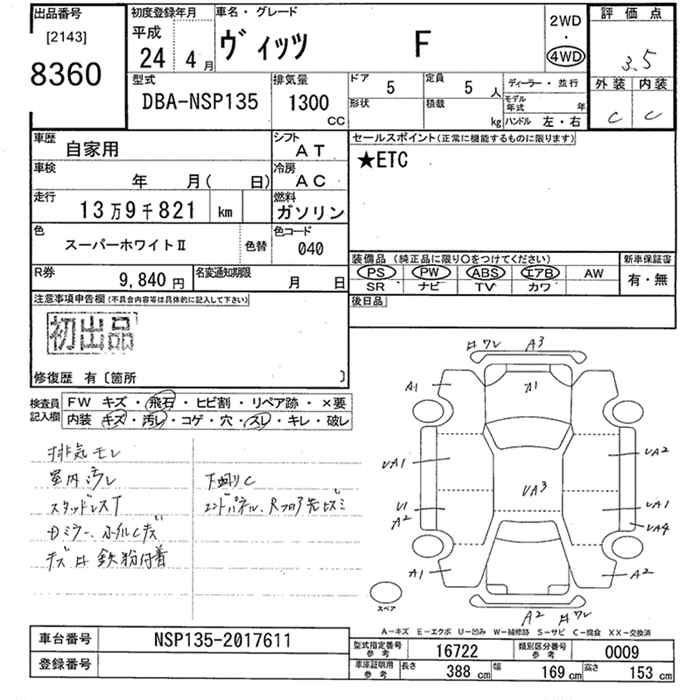 出品番号
[2143]
8360
初度登録年月
平成
24年 4月
車名・グレード
ヴィッツ F
2WD
・
4WD
評価点
3.5
外装 内装
C C
型式
DBA-NSP135
排気量
1300
CC
ドア 5
形状
定員 5 人
積載 kg
ディーラー・並行
モデル年式 年
ハンドル 左・右
車歴 自家用
シフト AT
車検 年 月( 日)
冷房 AC
走行 13万9千821 km
燃料 ガソリン
色 スーパーホワイトⅡ 色替
色コード 040
R券 9,840円
名変通知期限 月 日
セールスポイント(正常に機能するものに限ります)
★ETC
装備品(純正品に限り○をつけてください)
新車保証書
PS PW ABS エアB AW
SR ナビ TV カワ
有・無
後日品
注意事項申告欄(不具合内容等は具体的に記入して下さい)
初出品
修復歴 有〔箇所 〕
検査員記入欄
FW キズ・飛石・ヒビ割・リペア跡・×要
内装 キズ・汚レ・コゲ・穴・スレ・キレ・破レ
排気モレ
室内汚レ
スタッドレスT
Dミラー、ホイルCキズ
キズ 鉄粉付着
下廻りC
エンドパネル、Rフロア先ヒズミ
ワレ A3
A1 A1 A1
UA1 UA3 UA2
U1 A2 UA1
UA4
A1 A2
A2 ワレ
スペア
A-キズ E-エクボ U-凹み W-補修跡 S-サビ C-腐食 XX-交換済
車台番号 NSP135-2017611
登録番号
型式指定番号 参考 16722
類別区分番号 参考 0009
車庫証明用 参考 長さ 388 cm 幅 169 cm 高さ 153 cm